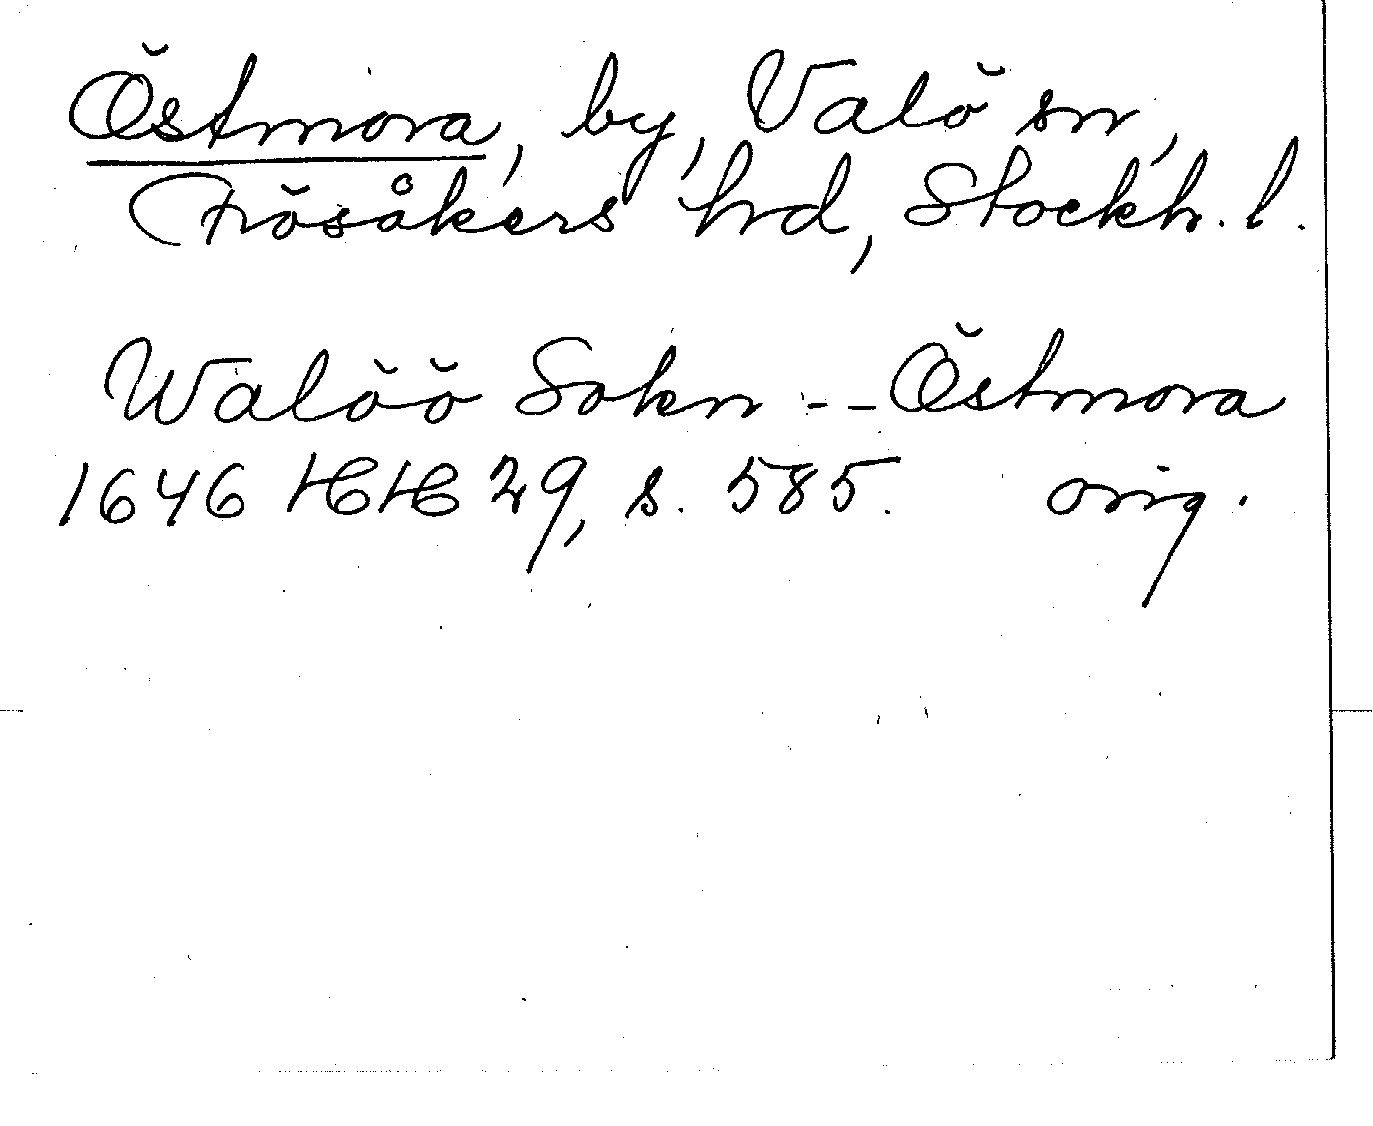 Östmora, by, Valö sn,
Frösåkers hd, Stockh. l.
Walöö Sokn - - Östmora
1646 HH 29, s. 585. orig.